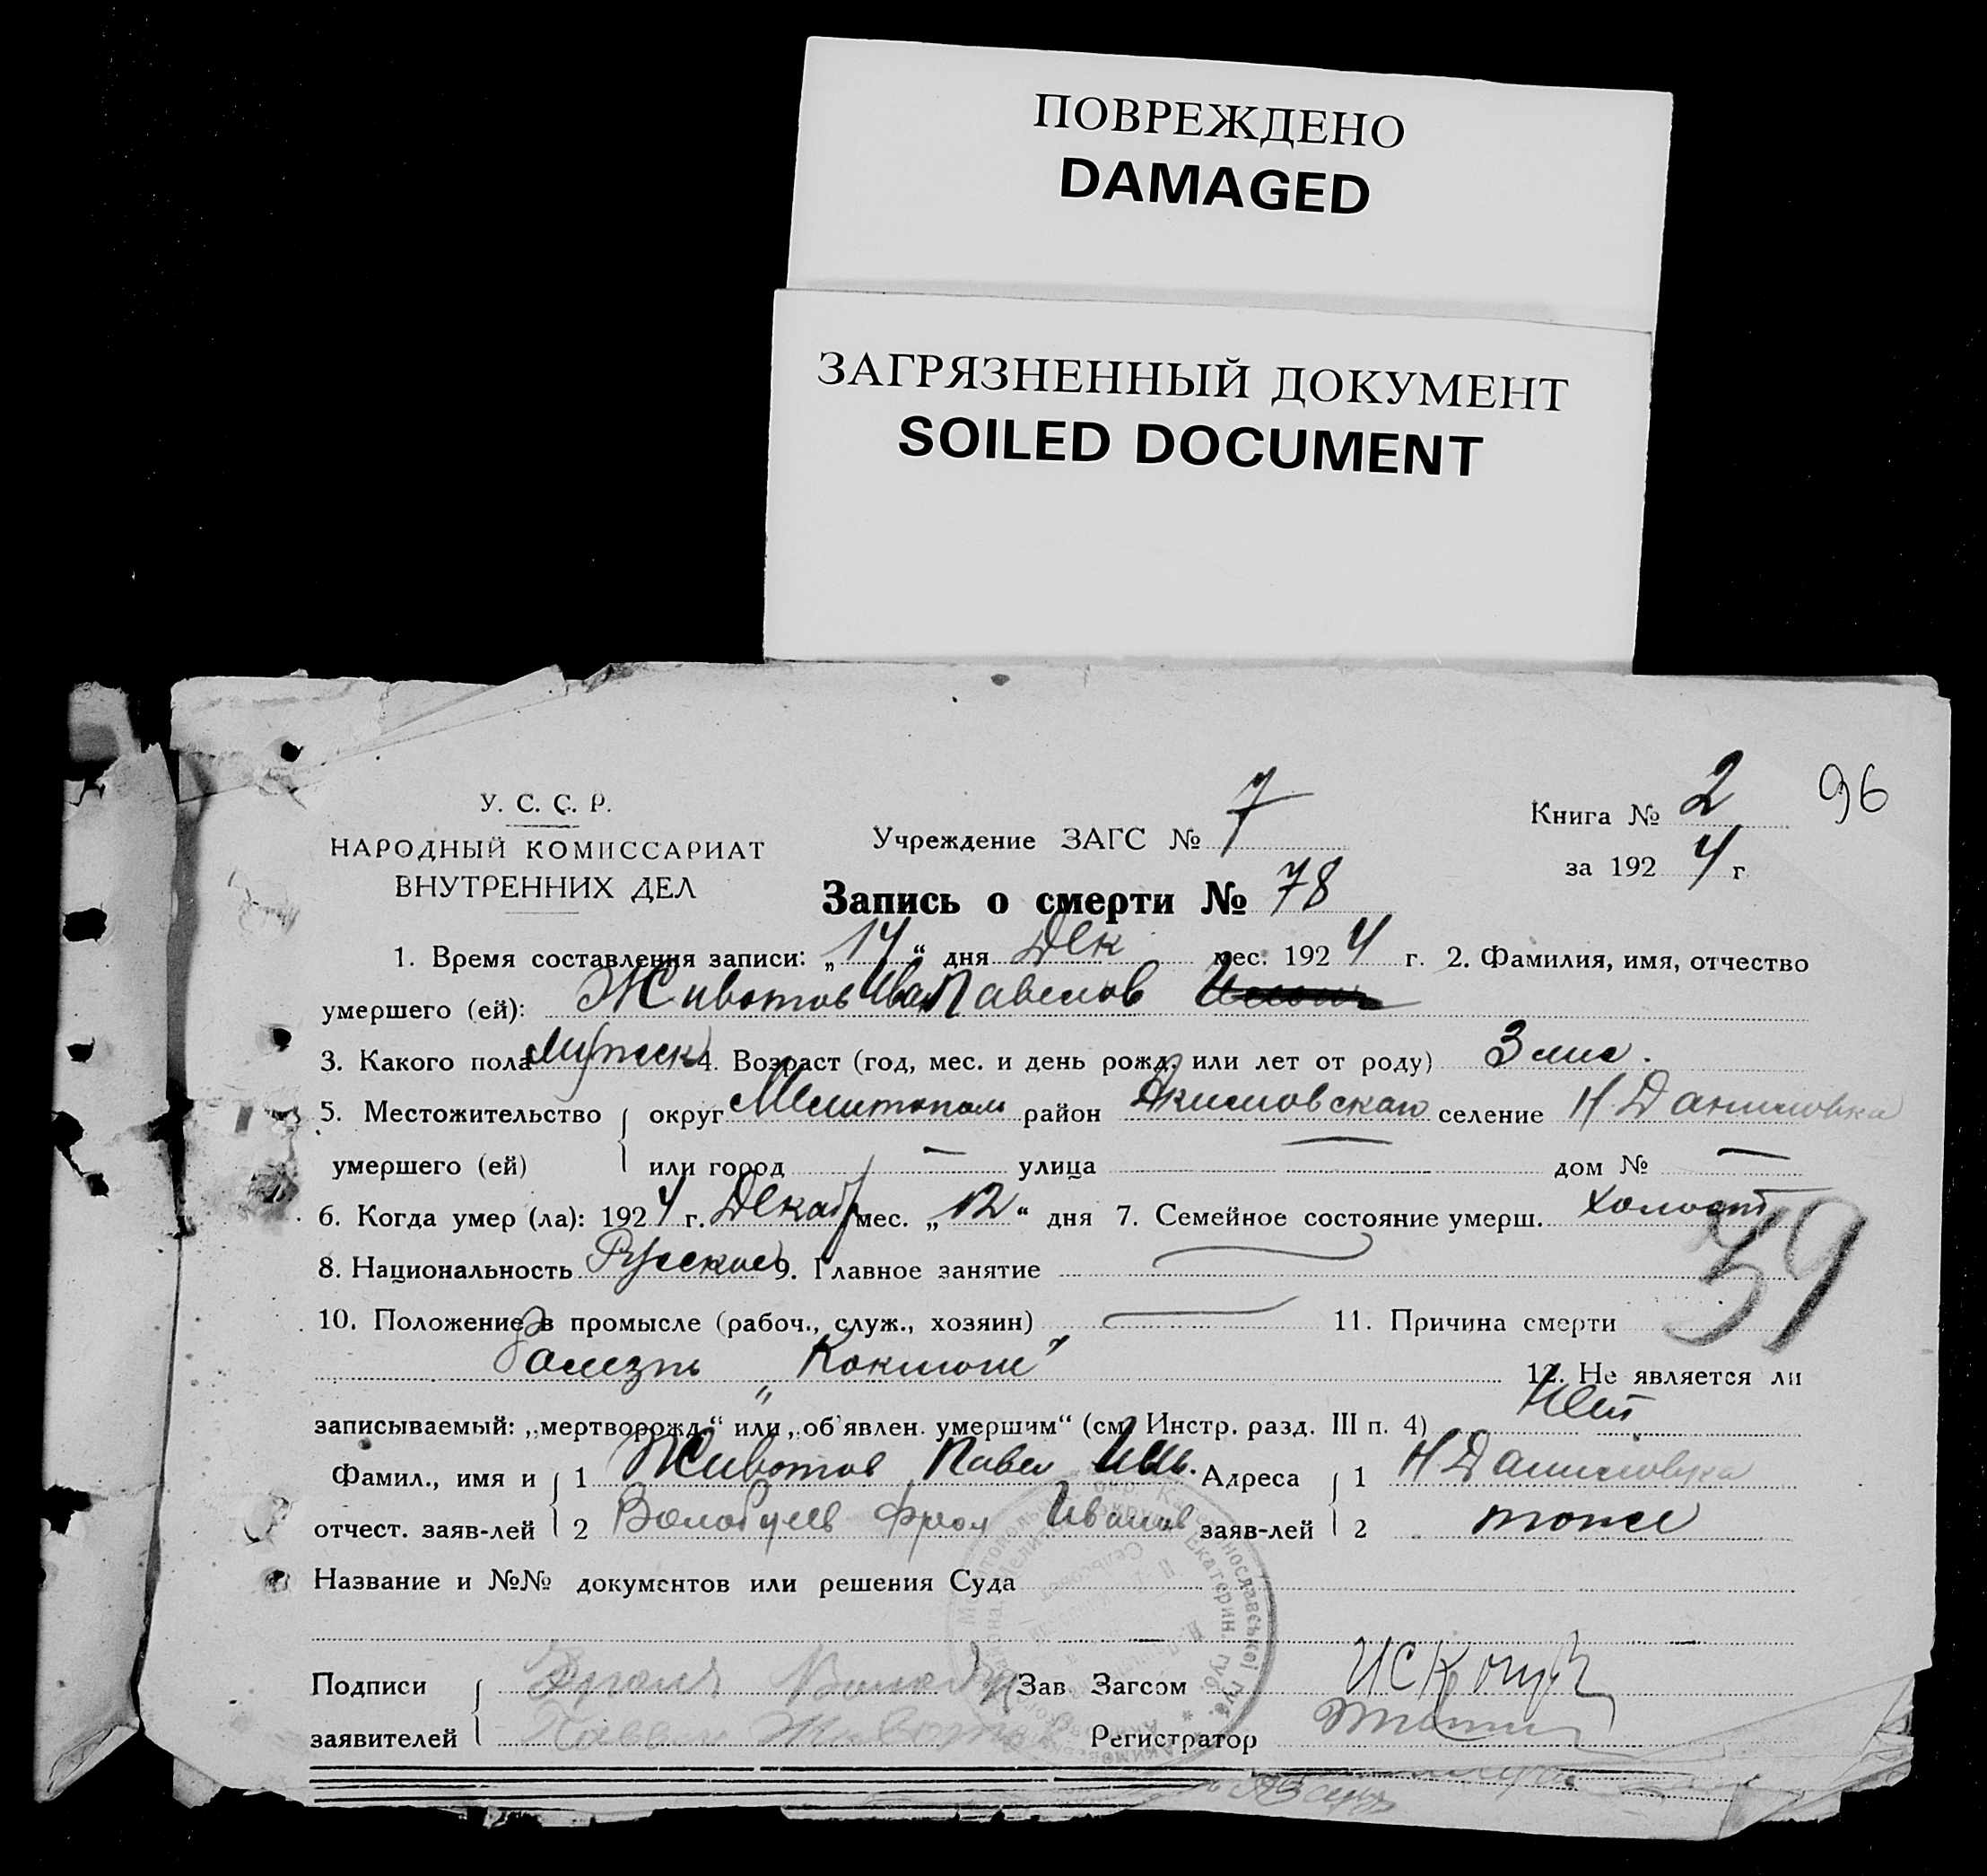 ПОВРЕЖДЕНО
DAMAGED
ЗАГРЯЗНЕННЫЙ ДОКУМЕНТ
SOILED DOCUMENT
96
У. С. С. Р.
НАРОДНЫЙ КОМИССАРИАТ
ВНУТРЕННИХ ДЕЛ
Учреждение ЗАГС № 7
Книга № 2
за 1924 г
Запись о смерти № 78
1. Время составления записи: „14“ дня Дек мес. 1924 г. 2. Фамилия, имя, отчество
умершего (ей): Животов Иван Павелов
3. Какого пола Мужск 4. Возраст (год, мес. и день рожд. или лет от роду) 3 мис.
5. Местожительство округ Мелитополь район Акимовская селение Н Даниловка
умершего (ей) или город — улица — дом № —
6. Когда умер (ла): 1924 г. Декабр мес. „12“ дня 7. Семейное состояние умерш. холост
8. Национальность Руский 9. Главное занятие —
39
10. Положение в промысле (рабоч., служ., хозяин) — 11. Причина смерти
Балезнь „Коклюш“ 12. Не является ли
записываемый: „мертворожд.“ или „об'явлен. умершим“ (см. Инстр. разд. III п. 4) Нет
Фамил., имя и 1 Животов Павел Адреса 1 Н Даниловка
отчест. заяв-лей 2 Волобуев Фрол Иванов заяв-лей 2 тоже
Название и №№ документов или решения Суда
Подписи Волобу Зав Загсом
заявителей Павел Животов Регистратор